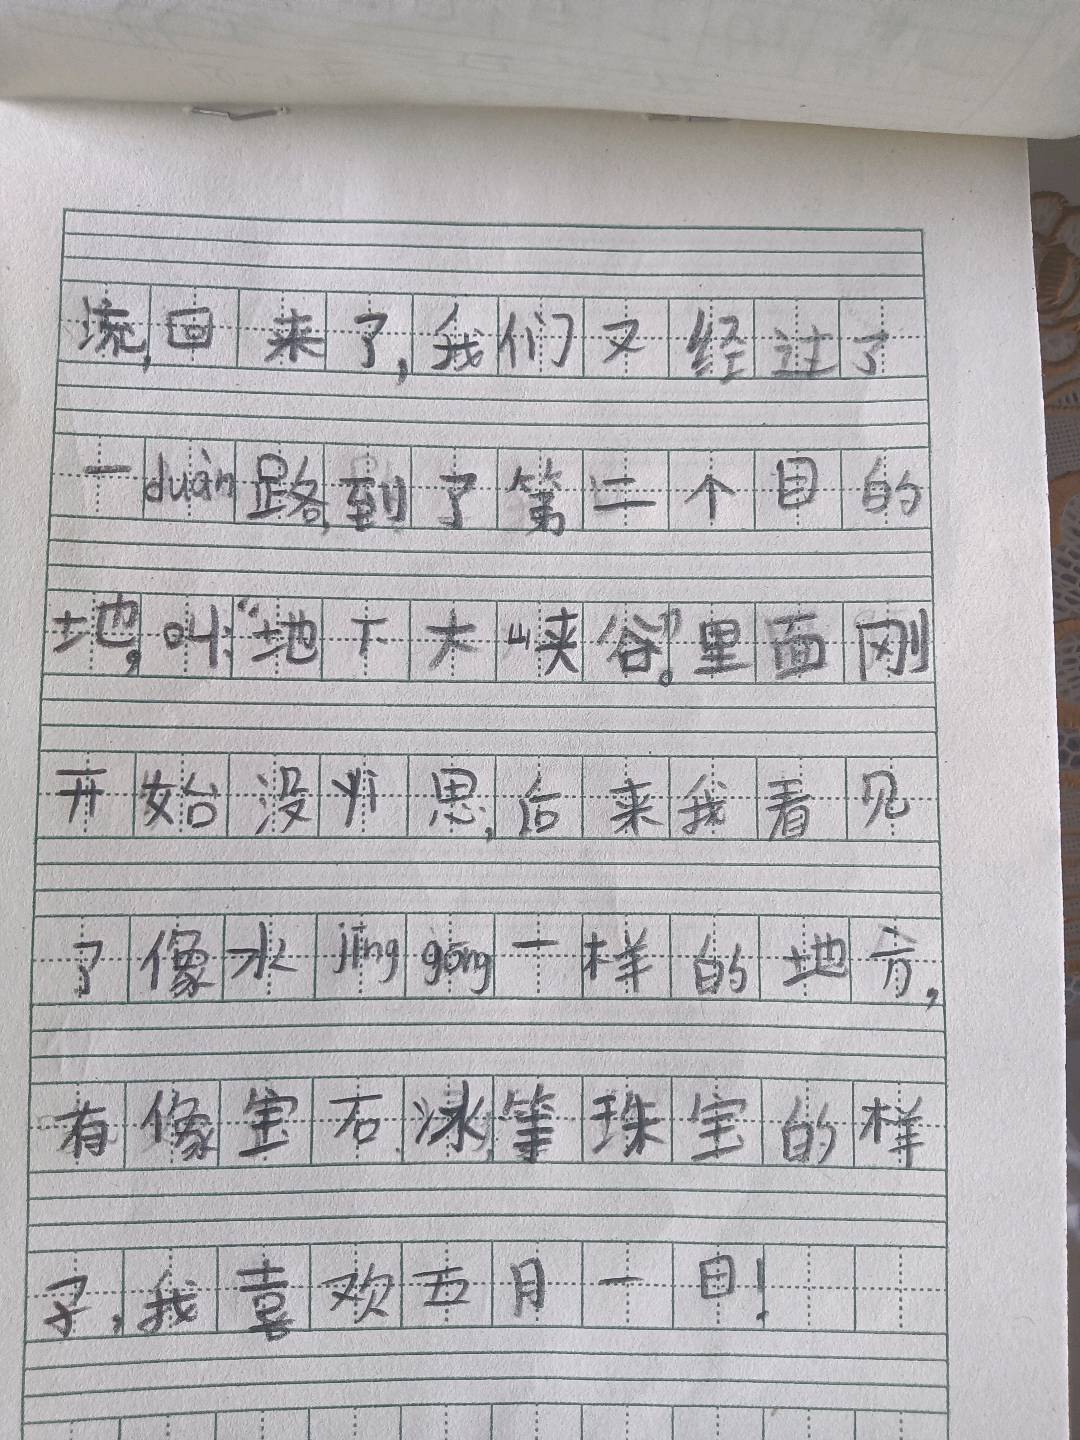 流,回来了,我们又经过了
一duàn路,到了第二个目的
地,叫:“地下大峡谷”。里面刚
开始没思,后来我看见
了像水jīnggōng一样的地方,
有像宝石、冰、笔、珠宝的样
子,我喜欢五月一日!